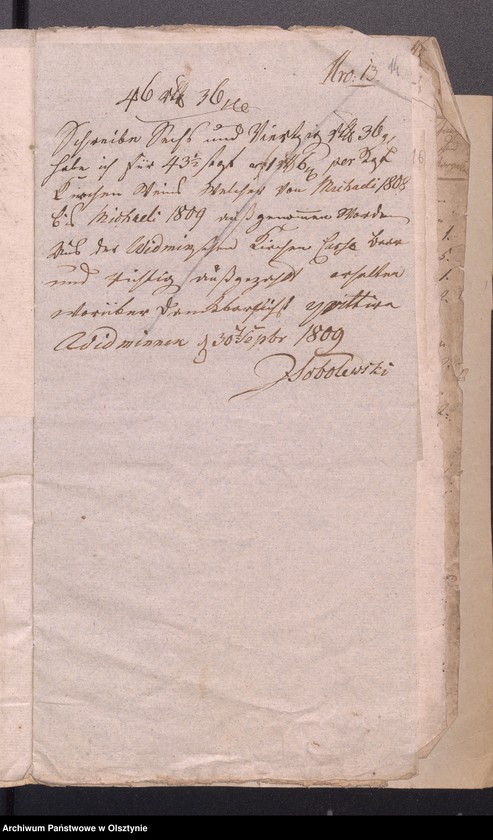 Nro: 13
14
46 rtlr 36
Schreibe Sechs und Viertzig rtlr 36
habe ich für 43½ per
Kirchen Wein Welcher von Michaeli 1808
bis Michaeli 1809 außgenommen Worden
Aus der Widminschen Kirchen Cassa baar
und richtig außgezahlt erhalten
worüber Danckbarlichst quittire
Widminnen d 30 Septbr 1809
Sobolewski
Archiwum Państwowe w Olsztynie